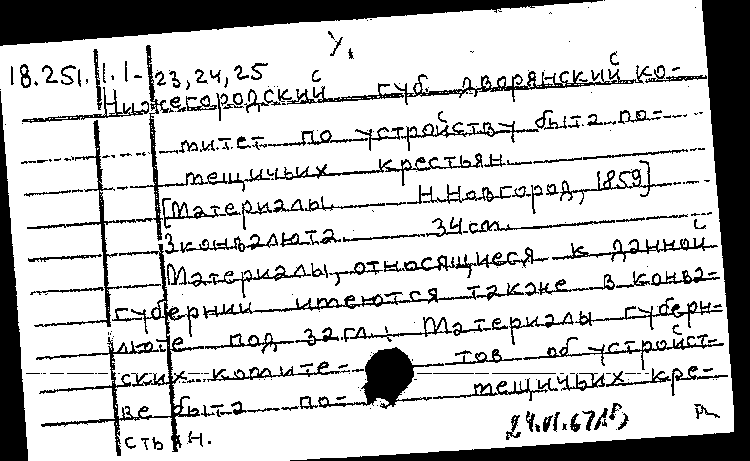 У.
18.251. 1.1- 23,24,25
Нижегородский губ. дворянский ко-
митет по устройству быта по-
мещичьих крестьян.
[Материалы. Н.Новгород, 1859]
3 конволюта. 34 см.
Материалы, относящиеся к данной
губернии имеются также в конво-
люте под загл.: Материалы губерн-
ских комите- тов об устройст-
ве быта по- мещичьих кре-
стьян.